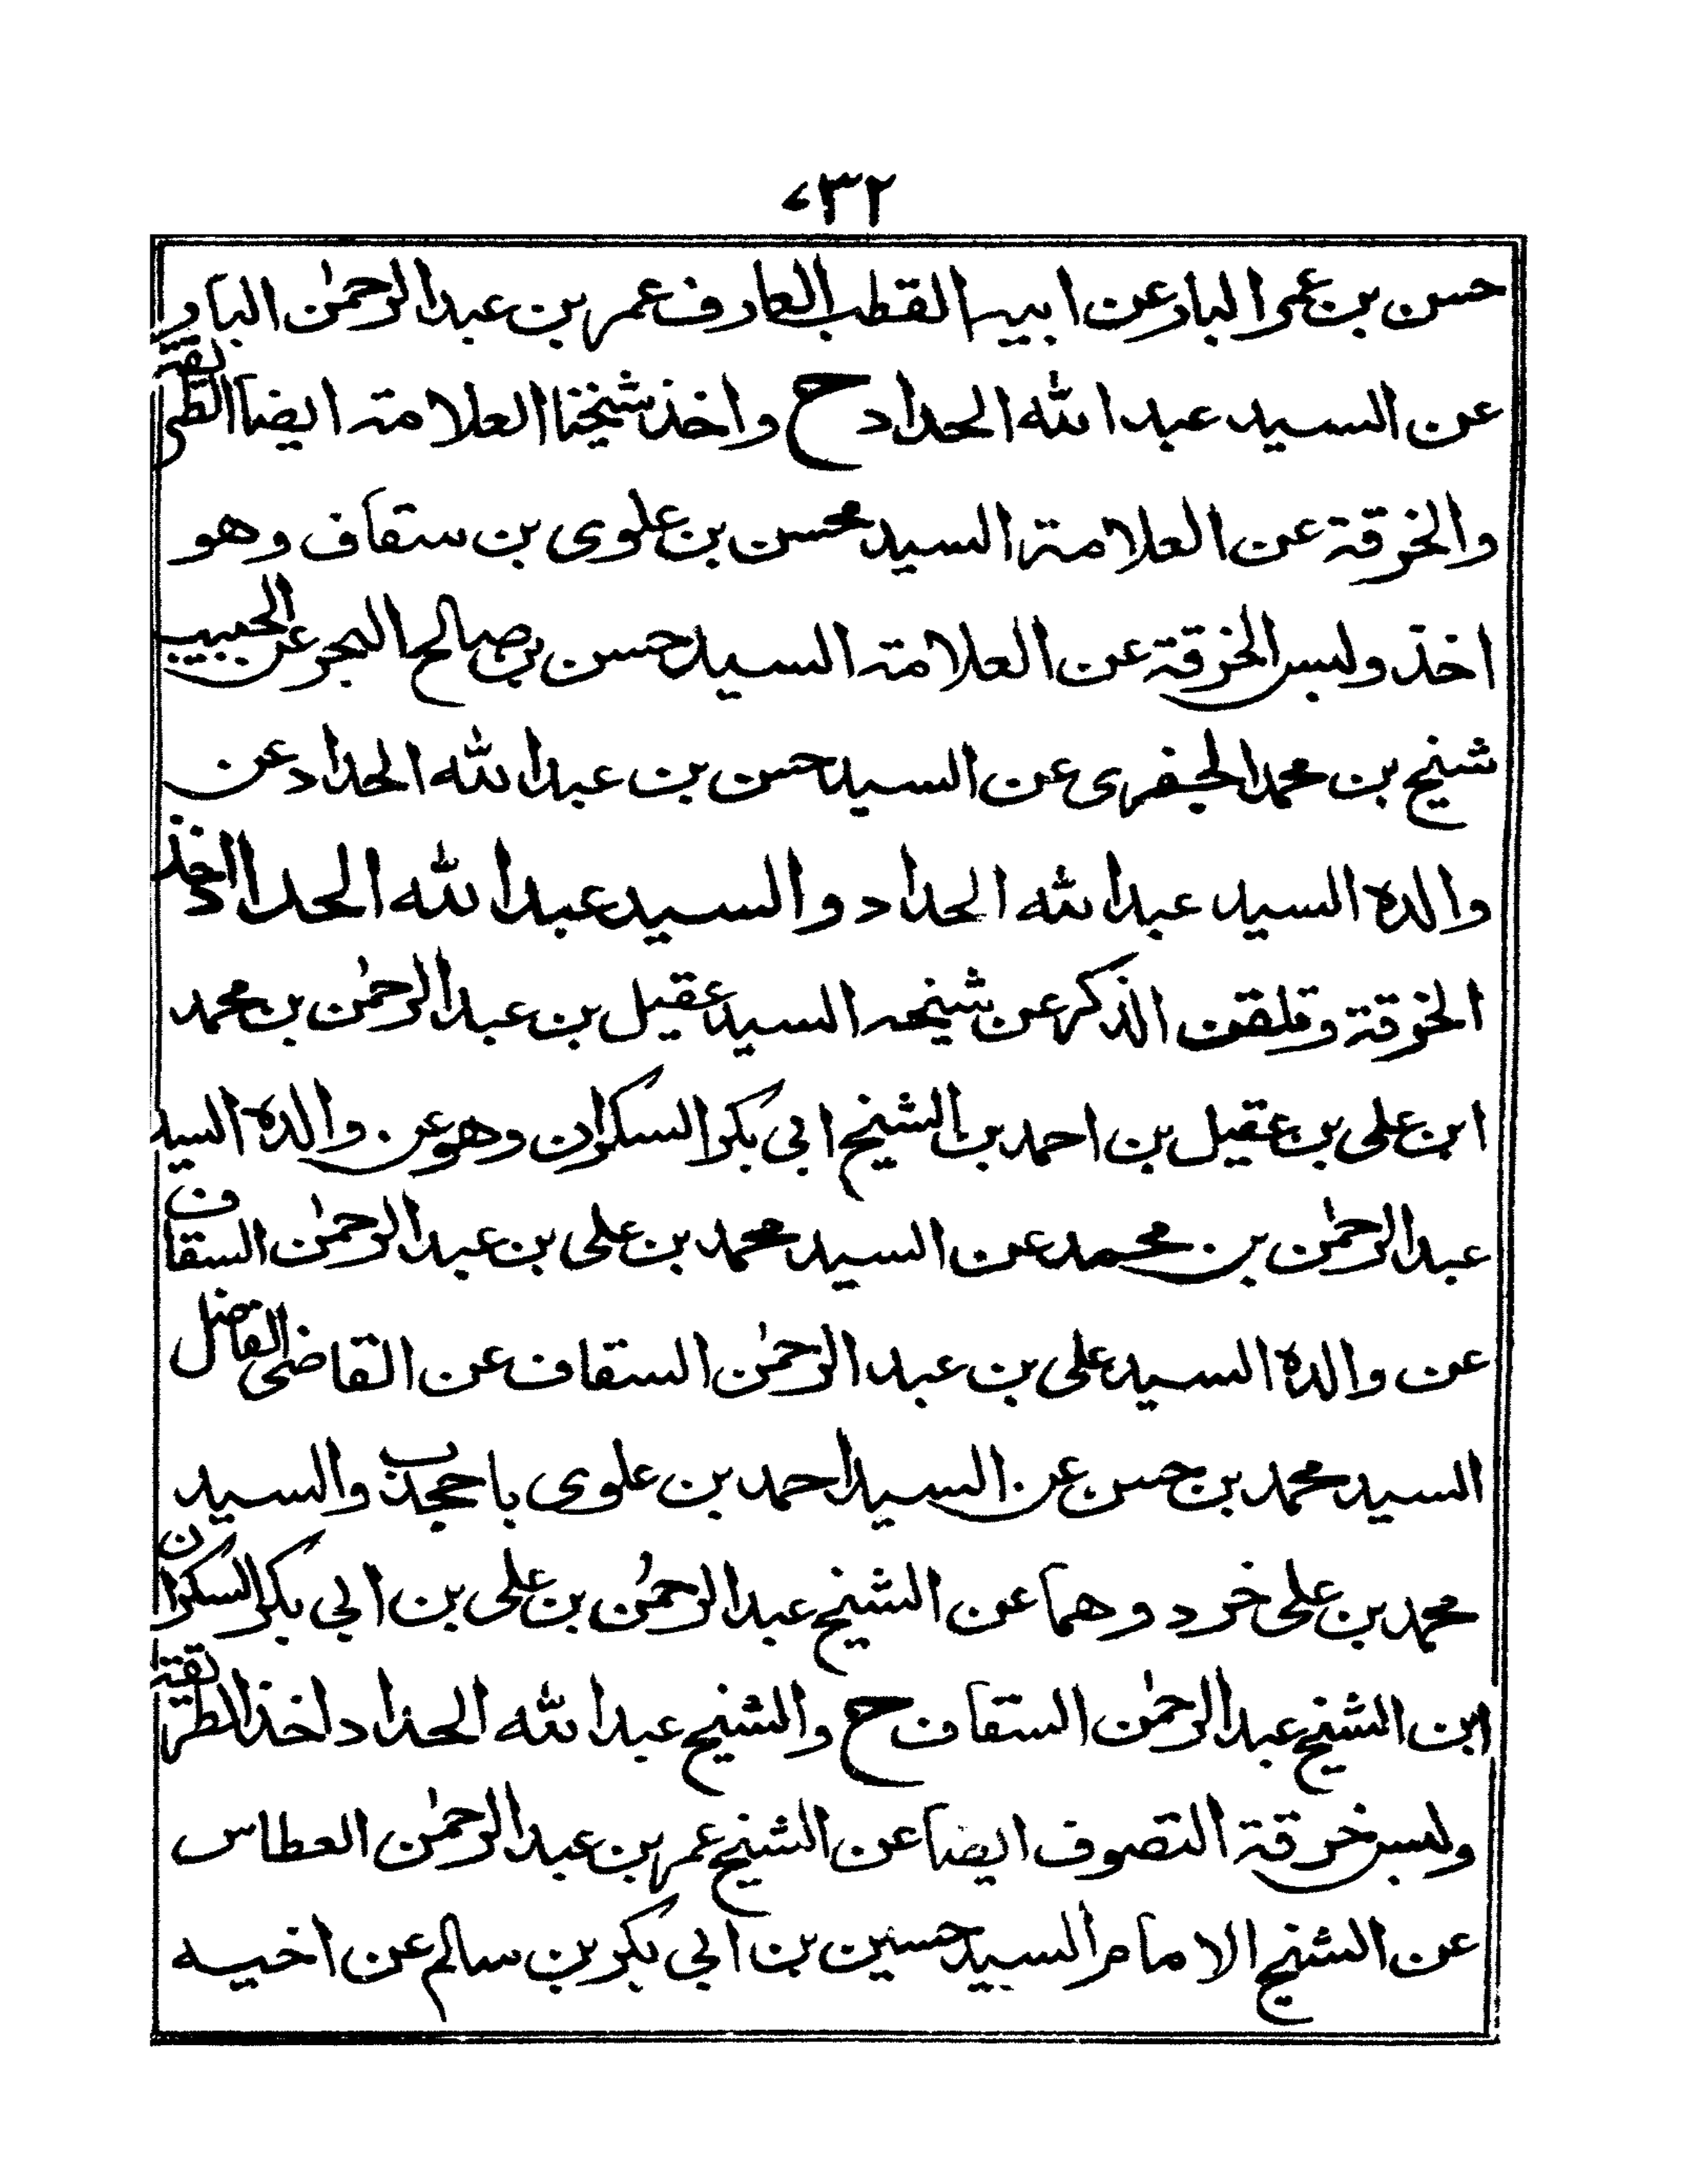 ٣٢
حسن بن عمر البار عن ابيه القطب العارف عمر بن عبد الرحمٰن البار
عن السيد عبد الله الحداد ح واخذ شيخنا العلامة ايضا الطريقة
والخرقة عن العلامة السيد محسن بن علوى بن سقاف وهو
اخذ ولبس الخرقة عن العلامة السيد حسن بن صالح البحر عن الحبيب
شيخ بن محمد الجفرى عن السيد حسن بن عبد الله الحداد عن
والده السيد عبد الله الحداد والسيد عبد الله الحداد اخذ
الخرقة وتلقن الذكر عن شيخه السيد عقيل بن عبد الرحمٰن بن محمد
ابن على بن عقيل بن احمد بن الشيخ ابي بكر السكران وهو عن والده السيد
عبد الرحمٰن بن محمد عن السيد محمد بن على بن عبد الرحمٰن السقاف
عن والده السيد على بن عبد الرحمٰن السقاف عن القاضى الفاضل
السيد محمد بن حسن عن السيد احمد بن علوى باجحدب والسيد
محمد بن على خرد وهما عن الشيخ عبد الرحمٰن بن على بن ابي بكر السكران
ابن الشيخ عبد الرحمٰن السقاف ح والشيخ عبد الله الحداد اخذ الطريقة
ولبس خرقة التصوف ايضا عن الشيخ عمر بن عبد الرحمٰن العطاس
عن الشيخ الامام السيد حسين بن ابي بكر بن سالم عن اخيه